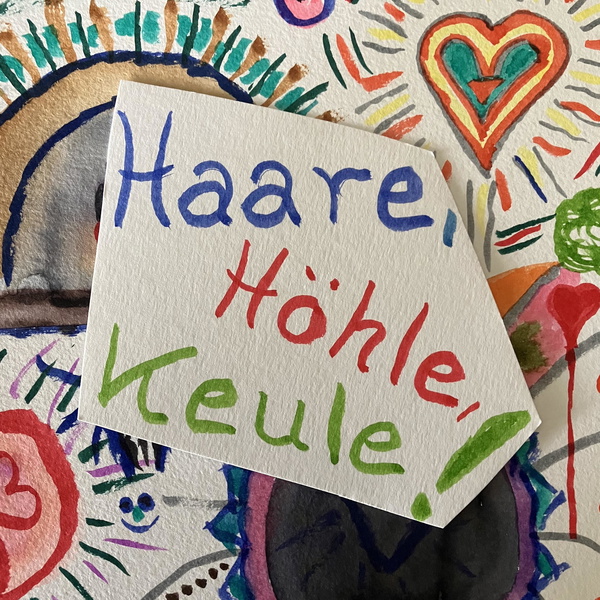 Haare,
Höhle,
Keule!